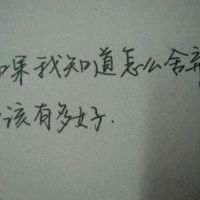 如果我知道怎么舍弃
该有多好.